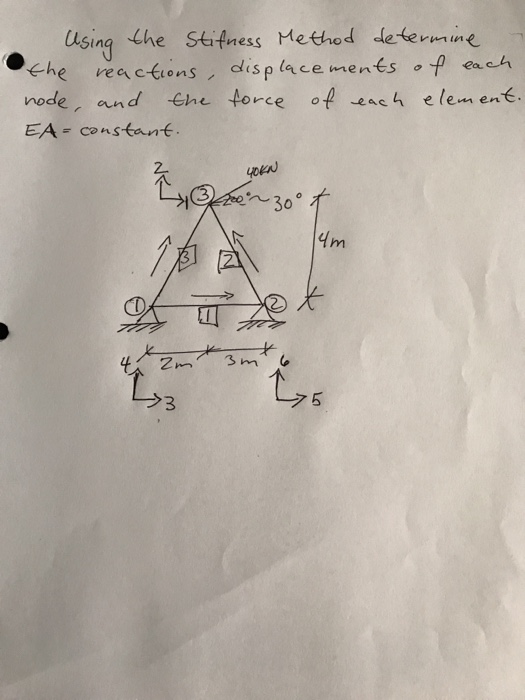 Using the Stifness Method determine
the reactions, displacements of each
node, and the force of each element.
EA = constant.
2
40KN
1
3
30°
3
2
4m
1
1
2
4
2m
3m
6
3
5